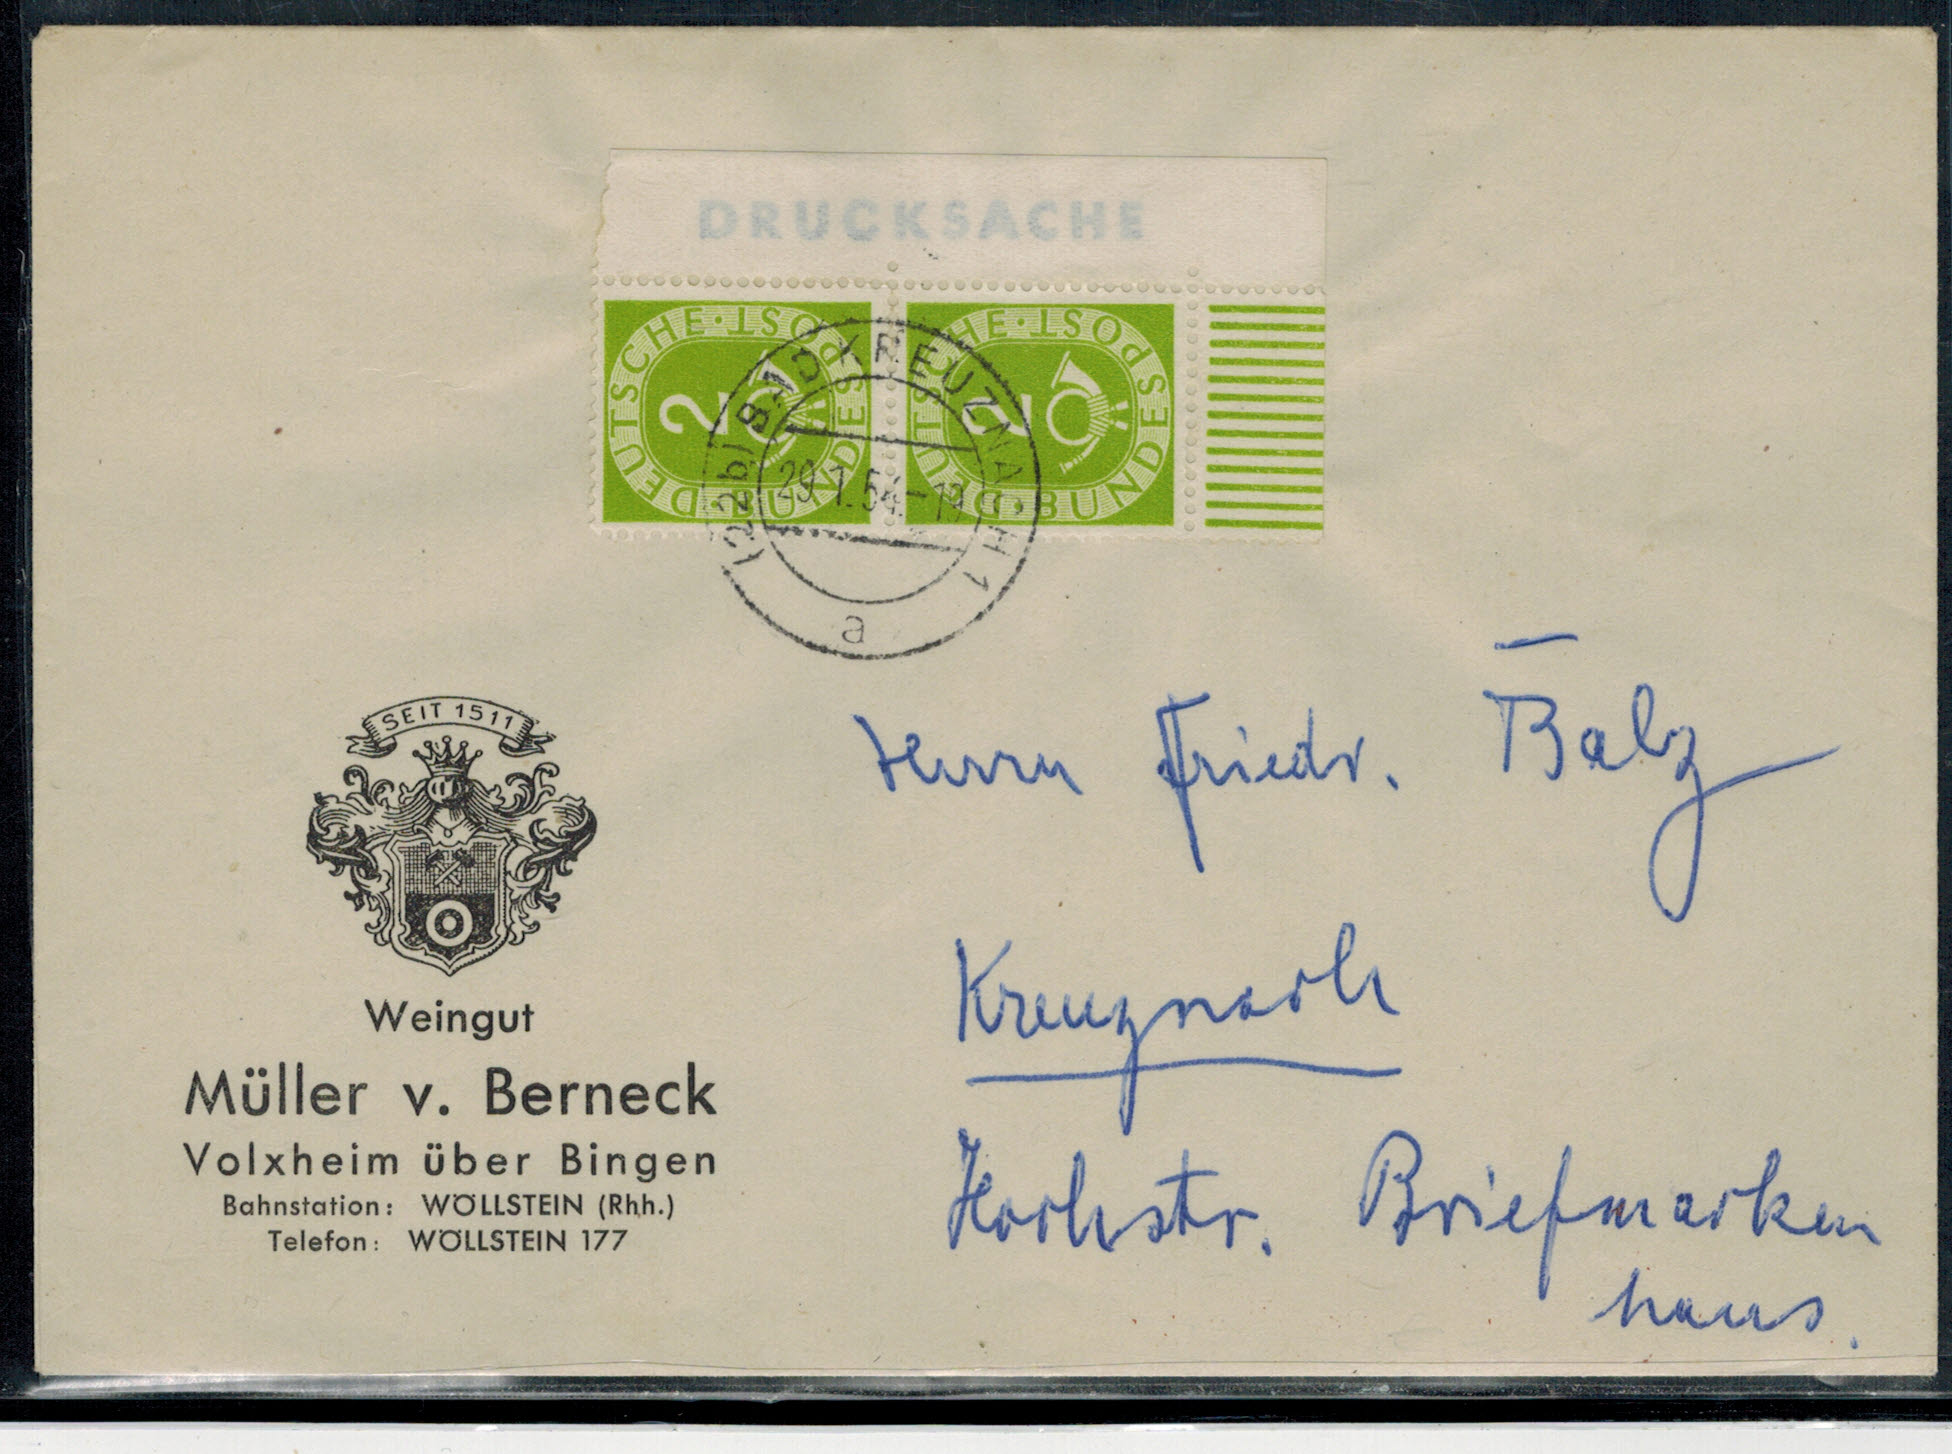 DRUCKSACHE
DEUTSCHE·POST BUNDES 2
DEUTSCHE·POST BUNDES 2
(22b) BAD KREUZNACH 1
29.1.54.-19
a
SEIT 1511
Weingut
Müller v. Berneck
Volxheim über Bingen
Bahnstation: WÖLLSTEIN (Rhh.)
Telefon: WÖLLSTEIN 177
Herrn Friedr. Balz
Kreuznach
Hochstr. Briefmarken
haus.